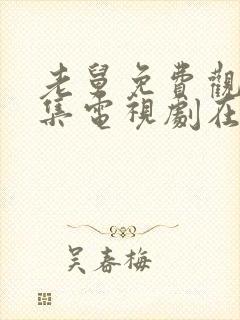 老舅免費觀
集電視劇在
吴春梅